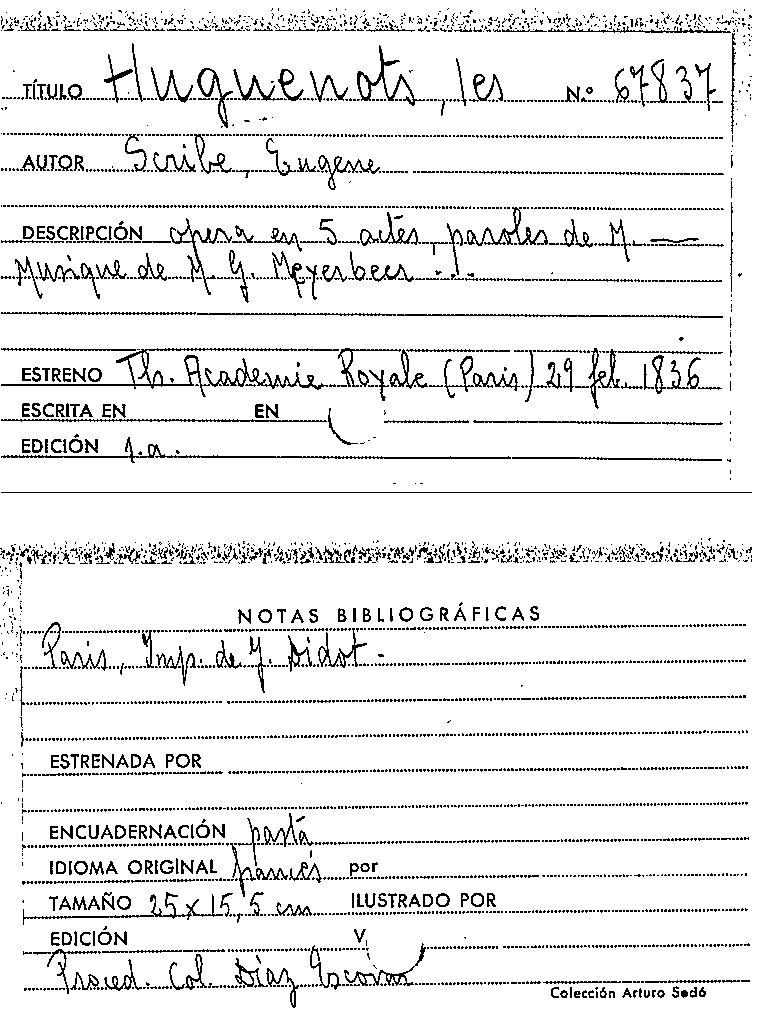 TÍTULO Huguenots, les N.º 67837
AUTOR Scribe, Eugene
DESCRIPCIÓN opera en 5 actes, paroles de M. —
Musique de M. G. Meyerbeer ...
ESTRENO Th. Academie Royale (Paris) 29 feb. 1836
ESCRITA EN EN
EDICIÓN s.a.
NOTAS BIBLIOGRÁFICAS
Paris, Imp. de J. Didot -
ESTRENADA POR
ENCUADERNACIÓN pasta
IDIOMA ORIGINAL francés por
TAMAÑO 25 x 15,5 cm ILUSTRADO POR
EDICIÓN V
Proced. Col. Díaz Escovar
Colección Arturo Sedó